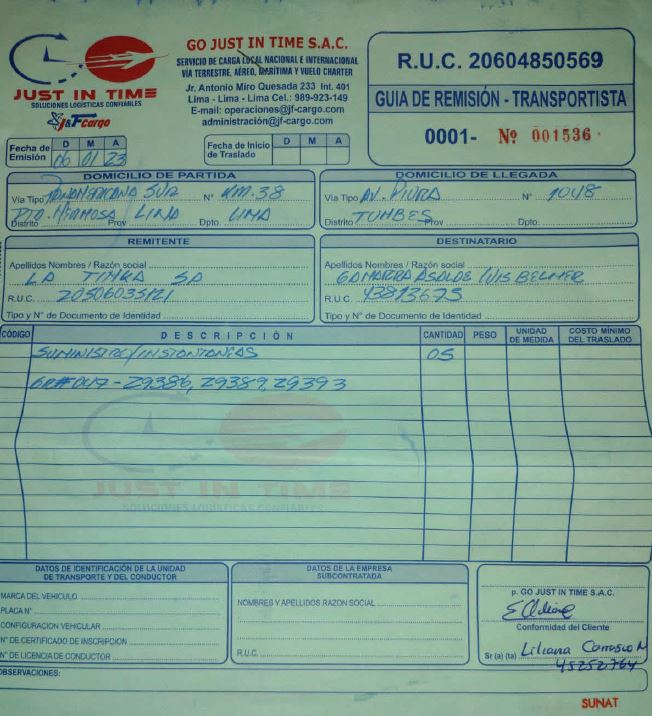 JUST IN TIME
SOLUCIONES LOGISTICAS CONFIABLES
J&F Cargo
GO JUST IN TIME S.A.C.
SERVICIO DE CARGA LOCAL NACIONAL E INTERNACIONAL
VÍA TERRESTRE, AÉREO, MARÍTIMA Y VUELO CHARTER
Jr. Antonio Miro Quesada 233 Int. 401
Lima - Lima - Lima Cel.: 989-923-149
E-mail: operaciones@jf-cargo.com
administración@jf-cargo.com
R.U.C. 20604850569
GUIA DE REMISIÓN - TRANSPORTISTA
0001- Nº 001536
Fecha de Emisión D M A 16 01 23
Fecha de Inicio de Traslado D M A
DOMICILIO DE PARTIDA
Vía Tipo PANAMERICANA SUR Nº KM.38
PTA. HERMOSA LIMA LIMA
Distrito Prov Dpto.
DOMICILIO DE LLEGADA
Vía Tipo AV. PIURA Nº 1048
TUMBES
Distrito Prov Dpto.
REMITENTE
Apellidos Nombres / Razón social
LA TINKA SA
R.U.C. 20506035121
Tipo y N° de Documento de Identidad
DESTINATARIO
Apellidos Nombres / Razón social
GAMARRA LUIS BELMER
R.U.C. 43813675
Tipo y N° de Documento de Identidad
CÓDIGO DESCRIPCIÓN CANTIDAD PESO UNIDAD DE MEDIDA COSTO MÍNIMO DEL TRASLADO
SUMINISTRO/INSTANTANEAS 05
GR#047-29386, 29389, 29393
JUST IN TIME
SOLUCIONES LOGISTICAS CONFIABLES
DATOS DE IDENTIFICACIÓN DE LA UNIDAD
DE TRANSPORTE Y DEL CONDUCTOR
MARCA DEL VEHICULO
PLACA N°
CONFIGURACION VEHICULAR
N° DE CERTIFICADO DE INSCRIPCION
N° DE LICENCIA DE CONDUCTOR
DATOS DE LA EMPRESA
SUBCONTRATADA
NOMBRES Y APELLIDOS RAZON SOCIAL
R.U.C.
p. GO JUST IN TIME S.A.C.
Conformidad del Cliente
Sr (a) (ta) Liliana Carrasco N
45252764
OBSERVACIONES:
SUNAT